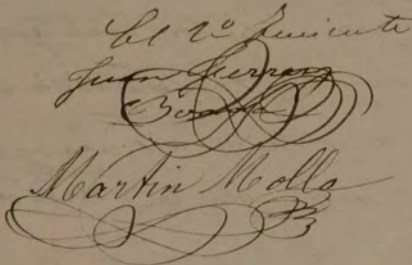 El 2º Teniente
Juan Ferrer
Martin Molla